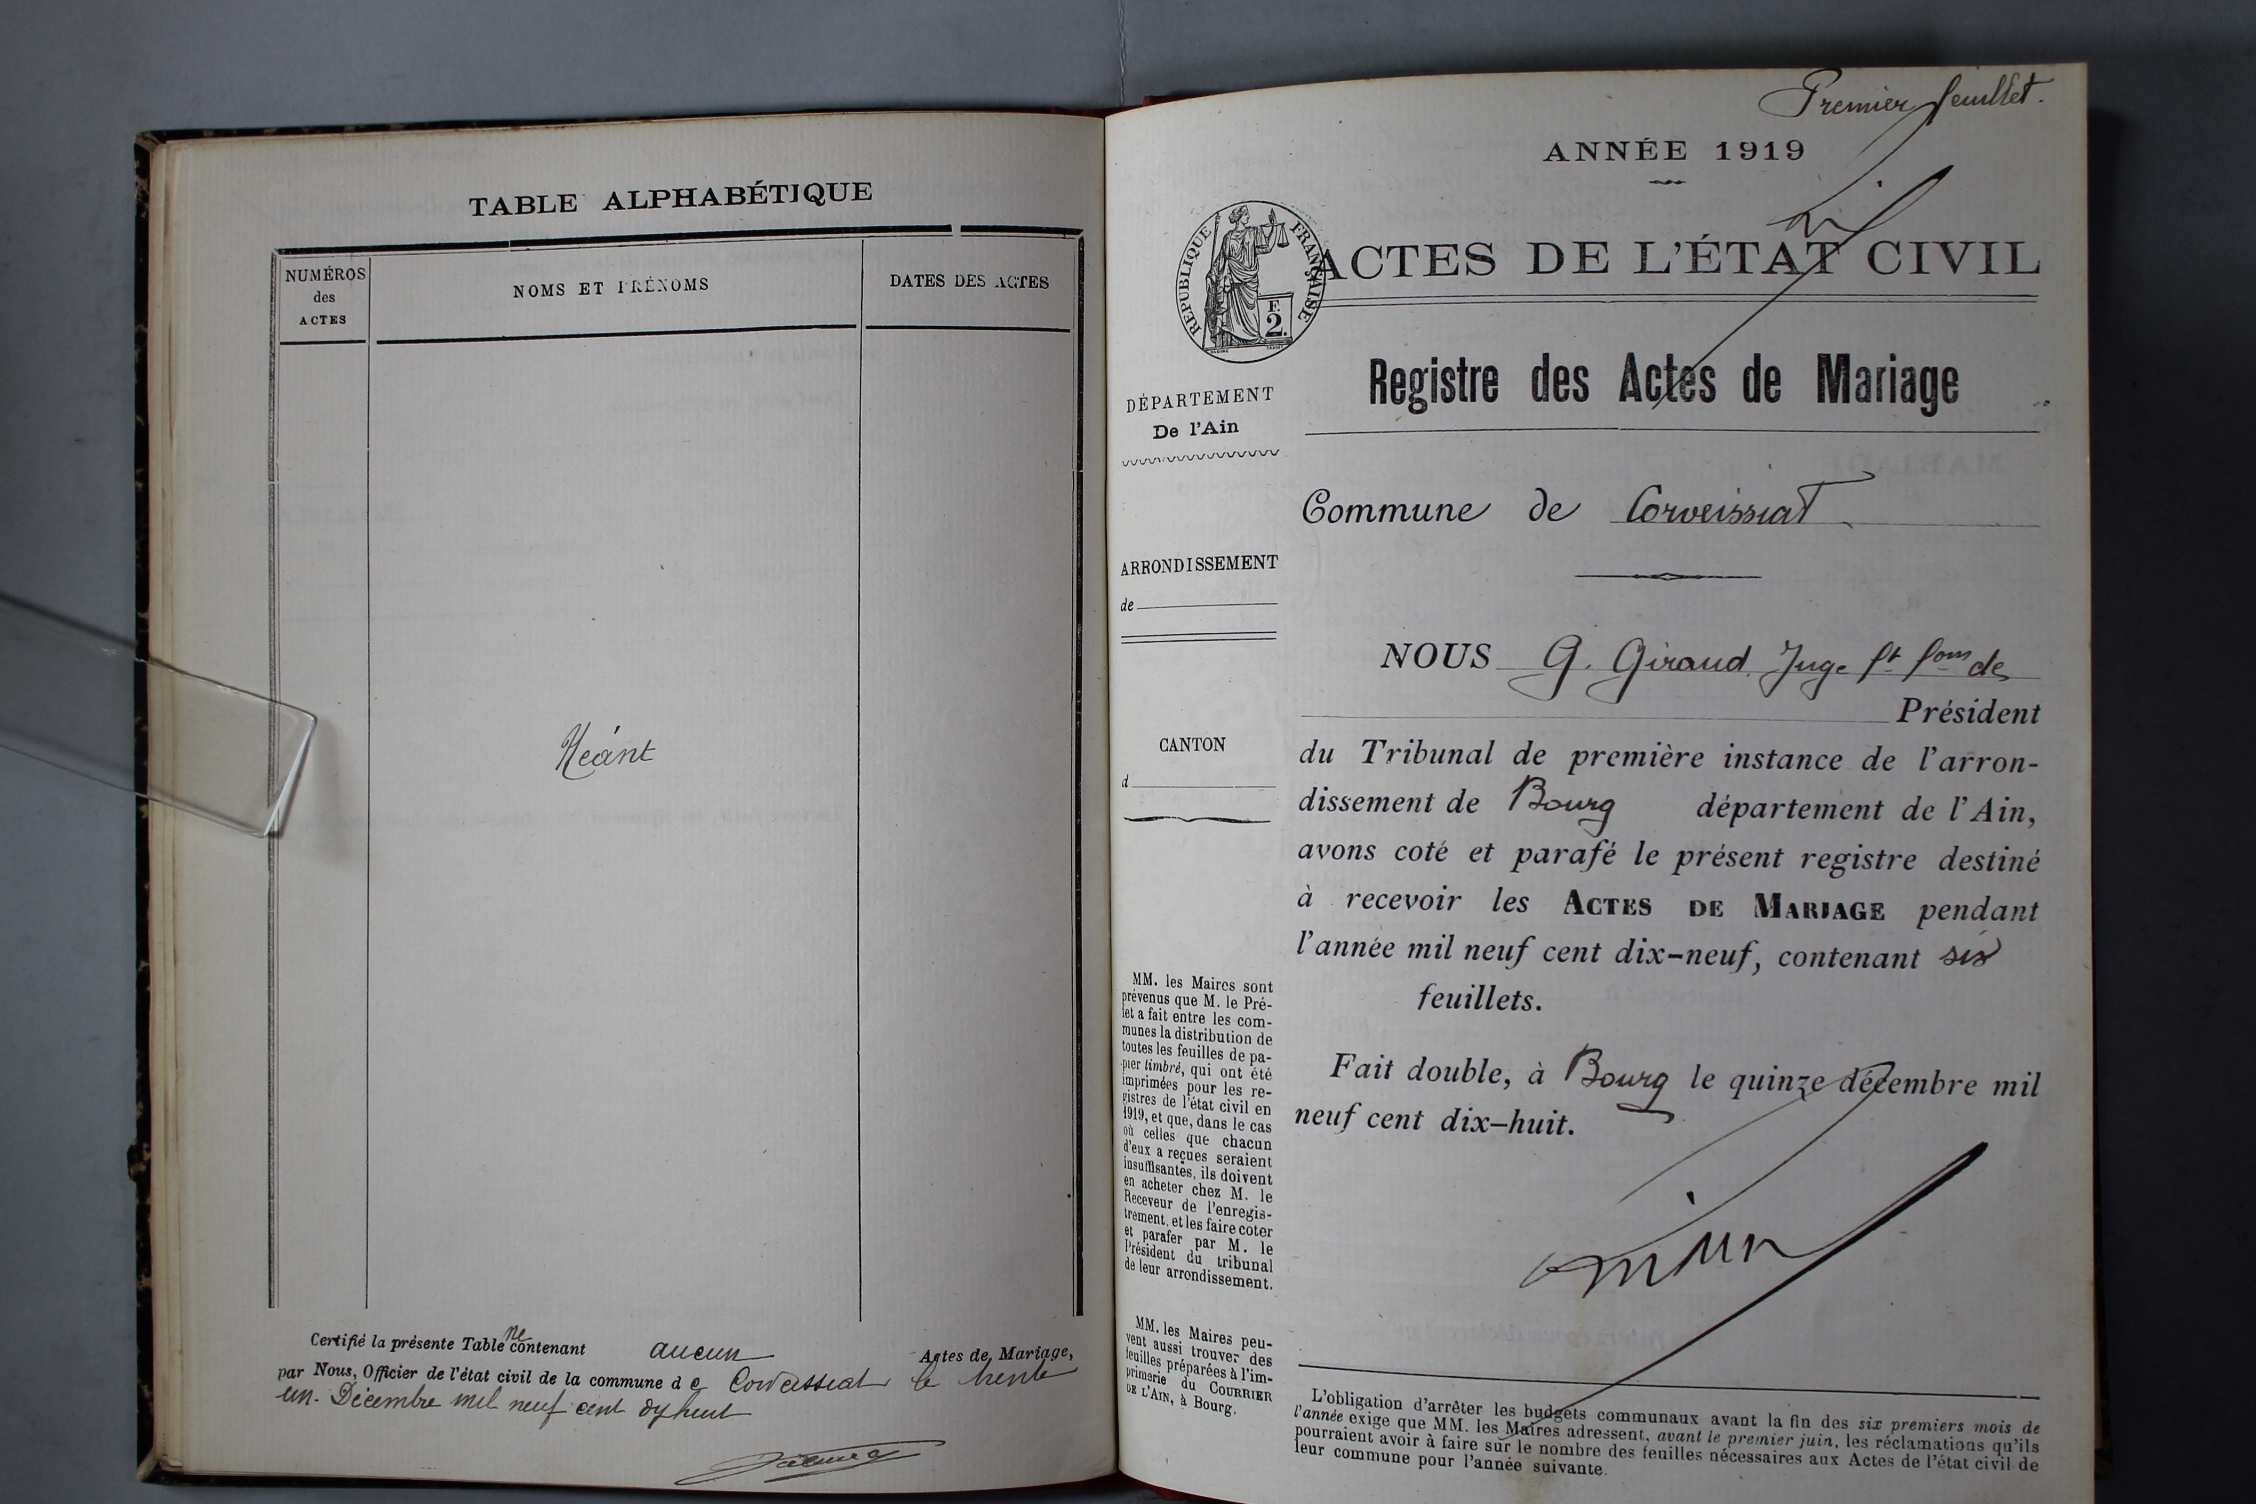 TABLE ALPHABÉTIQUE
NUMÉROS
des
ACTES
NOMS ET PRÉNOMS
DATES DES ACTES
Néant
Certifié la présente Table ne contenant aucun Actes de Mariage,
par Nous, Officier de l'état civil de la commune de Corveissiat le trente
un Décembre mil neuf cent dix huit
Premier feuillet.
ANNÉE 1919
RÉPUBLIQUE FRANÇAISE
F.
2.
ACTES DE L'ÉTAT CIVIL
Registre des Actes de Mariage
DÉPARTEMENT
De l'Ain
ARRONDISSEMENT
de
CANTON
d
MM. les Maires sont
prévenus que M. le Pré-
fet a fait entre les com-
munes la distribution de
toutes les feuilles de pa-
pier timbré, qui ont été
imprimées pour les re-
gistres de l'état civil en
1919, et que, dans le cas
où celles que chacun
d'eux a reçues seraient
insuffisantes, ils doivent
en acheter chez M. le
Receveur de l'enregis-
trement, et les faire coter
et parafer par M. le
Président du tribunal
de leur arrondissement.
MM. les Maires peu-
vent aussi trouver des
feuilles préparées à l'im-
primerie du COURRIER
DE L'AIN, à Bourg.
Commune de Corveissiat
NOUS G. Giraud Juge ft fons de
Président
du Tribunal de première instance de l'arron-
dissement de Bourg département de l'Ain,
avons coté et parafé le présent registre destiné
à recevoir les ACTES DE MARIAGE pendant
l'année mil neuf cent dix-neuf, contenant six
feuillets.
Fait double, à Bourg le quinze décembre mil
neuf cent dix-huit.
L'obligation d'arrêter les budgets communaux avant la fin des six premiers mois de
l'année exige que MM. les Maires adressent, avant le premier juin, les réclamations qu'ils
pourraient avoir à faire sur le nombre des feuilles nécessaires aux Actes de l'état civil de
leur commune pour l'année suivante.